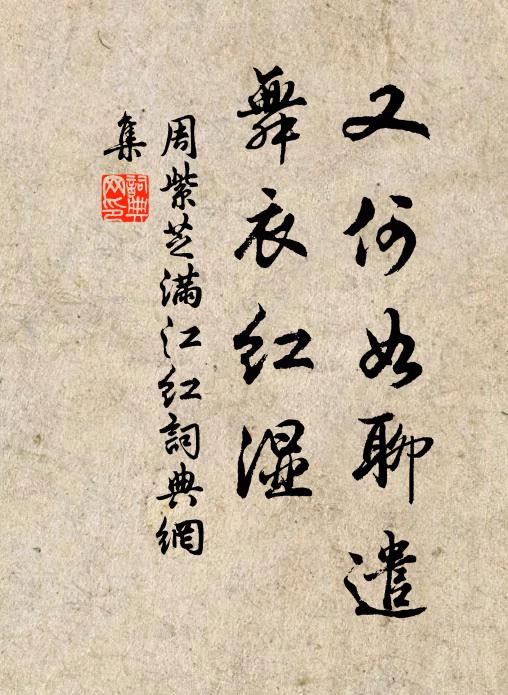 又何如聊遣
舞衣红湿
周紫芝满江红詞典網
集
詞典
网印